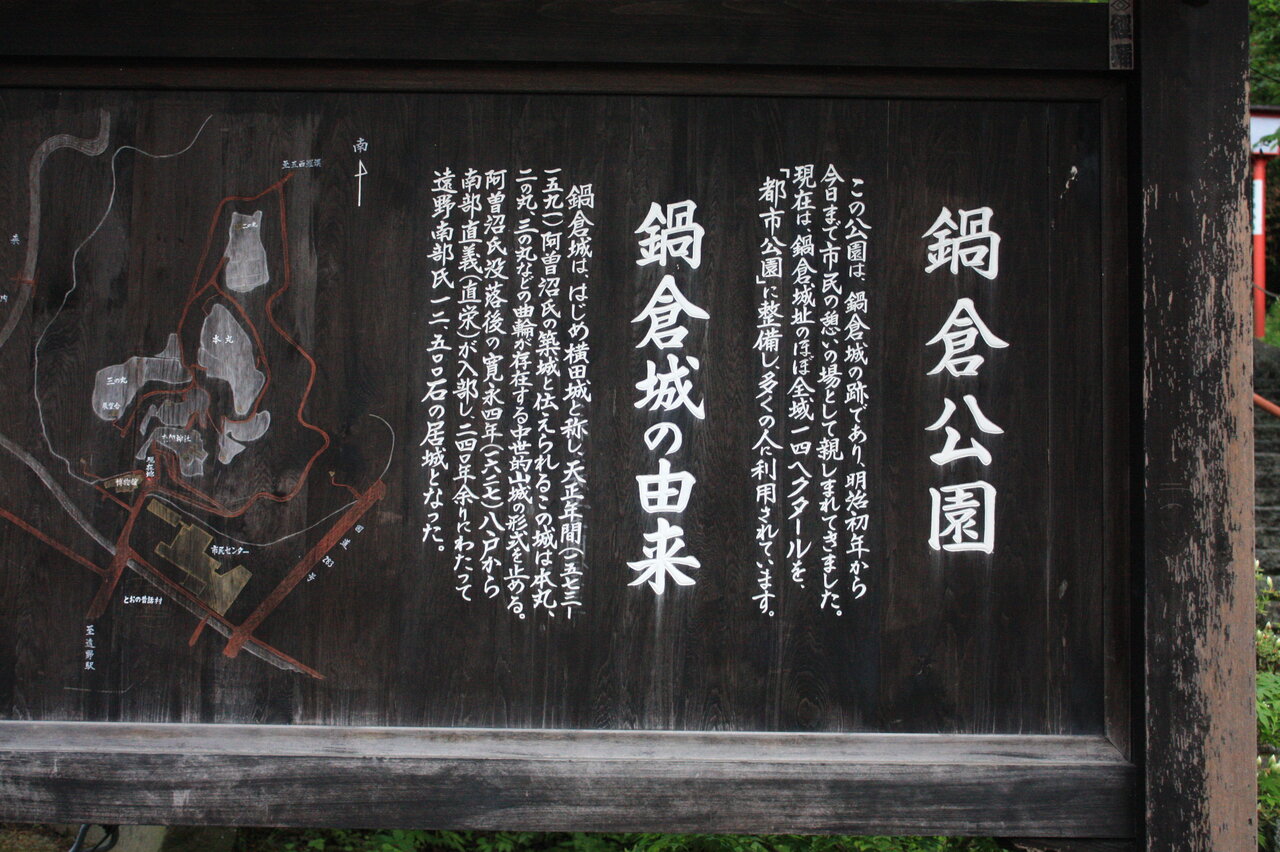 鍋倉公園
この公園は、鍋倉城の跡であり、明治初年から
今日まで市民の憩いの場として親しまれてきました。
現在は、鍋倉城址のほぼ全域一四ヘクタールを、
「都市公園」に整備し、多くの人に利用されています。
鍋倉城の由来
鍋倉城は、はじめ横田城と称し、天正年間(一五七三ー
一五九一)阿曽沼氏の築城と伝えられるこの城は本丸、
二の丸、三の丸などの曲輪が存在する中世的山城の形式を止める。
阿曽沼氏没落後の寛永四年(一六二七)八戸から
南部直義(直栄)が入部し、二四〇年余りにわたって
遠野南部氏一二、五〇〇石の居城となった。
南
二の丸
本丸
三の丸
展望台
現在地
博物館
市民センター
とおの昔話村
国道283号
至遠野駅